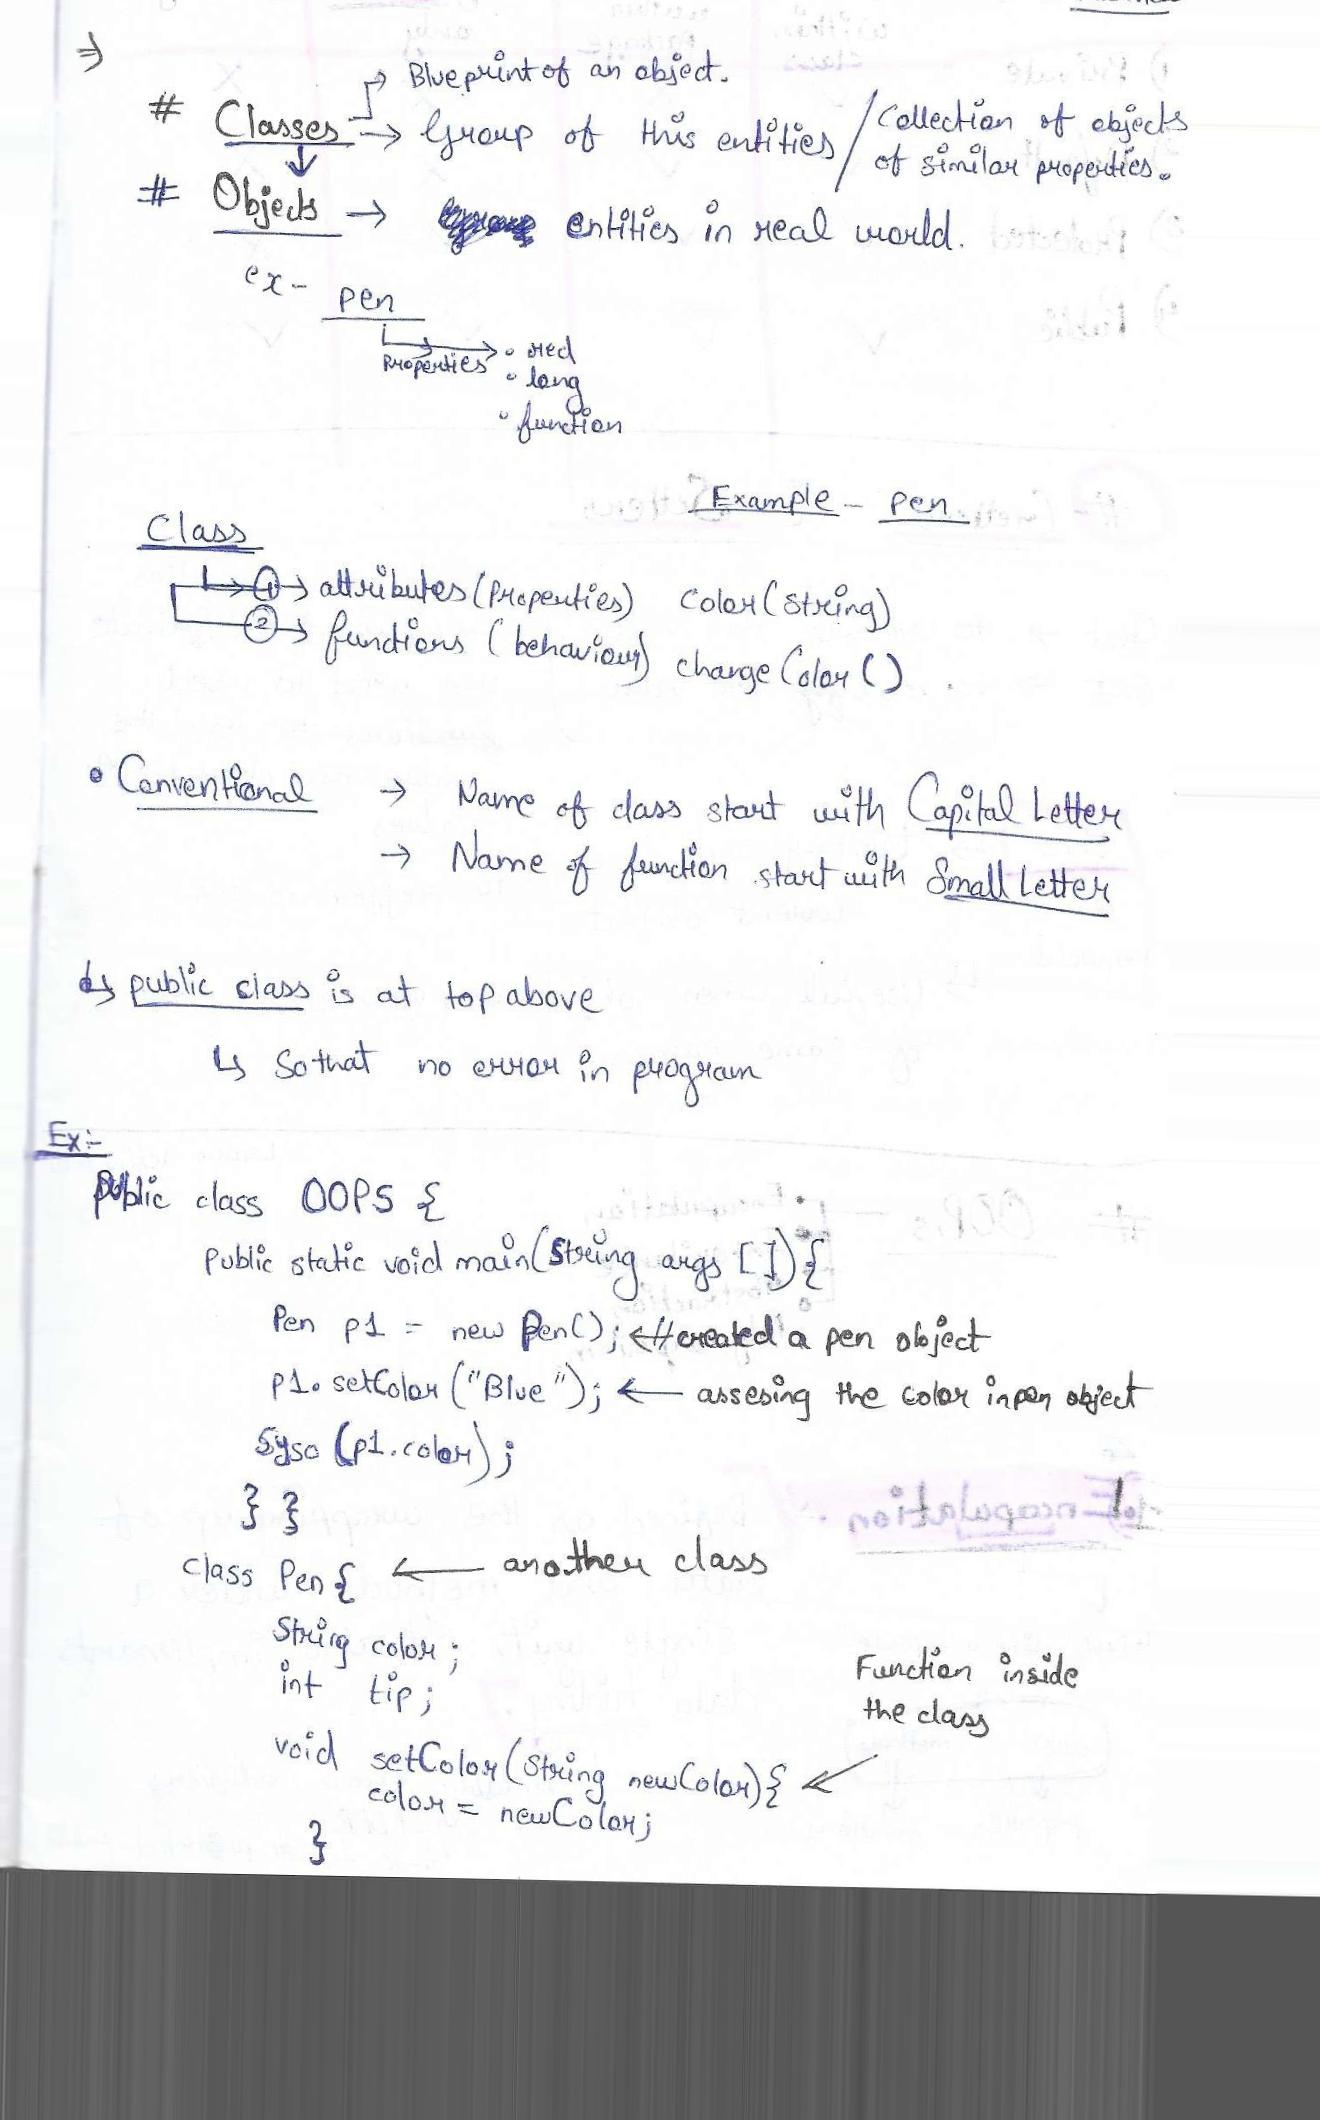 ⇒
→ Blueprint of an object.
# Classes → Group of this entities / Collection of objects of similar properties.
↓
# Objects → entities in real world.
ex- pen
Properties → • red
• long
• function
Example - pen
Class
① → attributes (Properties) Color (String)
② → functions (behaviour) change Color ()
• Conventional → Name of class start with Capital Letter
→ Name of function start with Small Letter
↳ public class is at top above
↳ So that no error in program
Ex:-
public class OOPS {
public static void main(String args []){
Pen p1 = new Pen(); ← // created a pen object
p1.setColor ("Blue"); ← assesing the color in pen object
Syso (p1.color);
} }
class Pen { ← another class
String color;
int tip;
Function inside
the class
void setColor (String newColor){ ←
color = newColor;
}